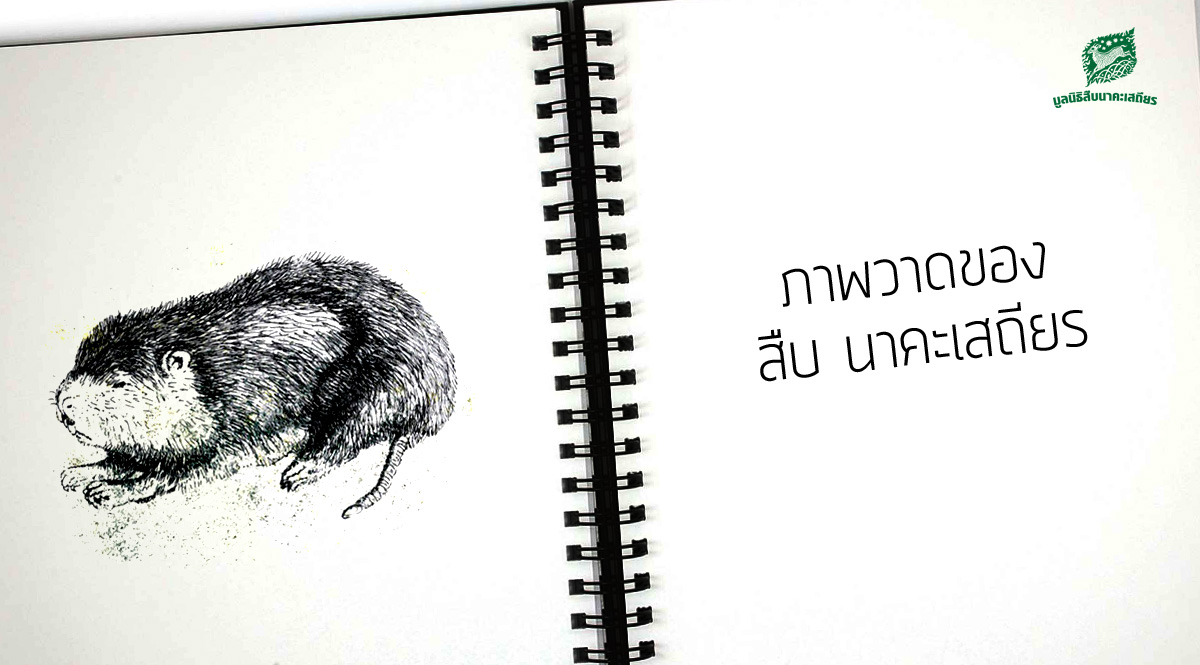 มูลนิธิสืบนาคะเสถียร
ภาพวาดของ
สืบ นาคะเสถียร